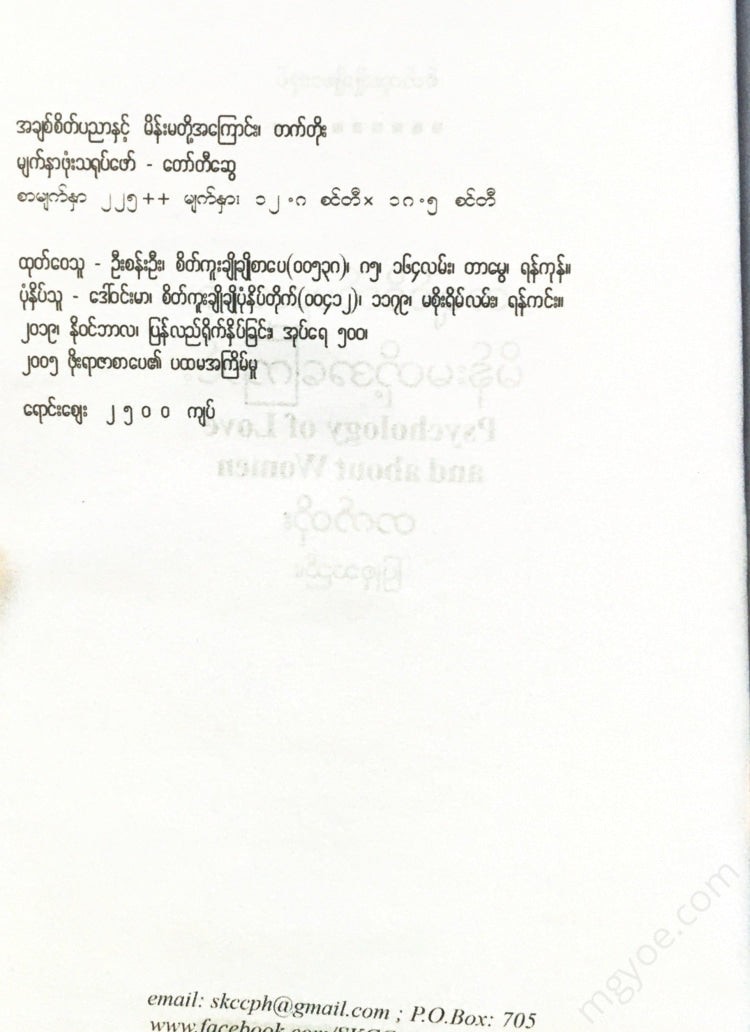 အချစ်စိတ်ပညာနှင့် မိန်းမတို့အကြောင်း၊ တက်တိုး
မျက်နှာဖုံးသရုပ်ဖော် - တော်တီဆွေ
စာမျက်နှာ ၂၂၅++ မျက်နှာ၊ ၁၂.၈ စင်တီ× ၁၈.၅ စင်တီ
ထုတ်ဝေသူ - ဦးစန်းဦး၊ စိတ်ကူးချိုချိုစာပေ(၀၀၅၃၈)၊ ၈၅၊ ၁၆၄လမ်း၊ တာမွေ၊ ရန်ကုန်။
ပုံနှိပ်သူ - ဒေါ်ဝင်းမာ၊ စိတ်ကူးချိုချိုပုံနှိပ်တိုက်(၀၀၄၁၂)၊ ၁၁၇၉၊ မစိုးရိမ်လမ်း၊ ရန်ကင်း။
၂၀၁၉၊ နိုဝင်ဘာလ၊ ပြန်လည်ရိုက်နှိပ်ခြင်း၊ အုပ်ရေ ၅၀၀၊
၂၀၀၅ ဖိုးရာဇာစာပေ၏ ပထမအကြိမ်မူ
ရောင်းဈေး ၂၅၀၀ ကျပ်
email: skccph@gmail.com ; P.O.Box: 705
mgyoe.com